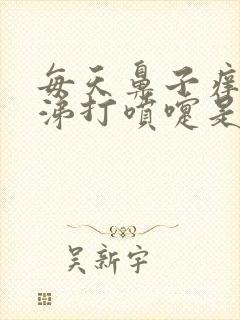 每天鼻子痒
涕打喷嚏是
吴新宇